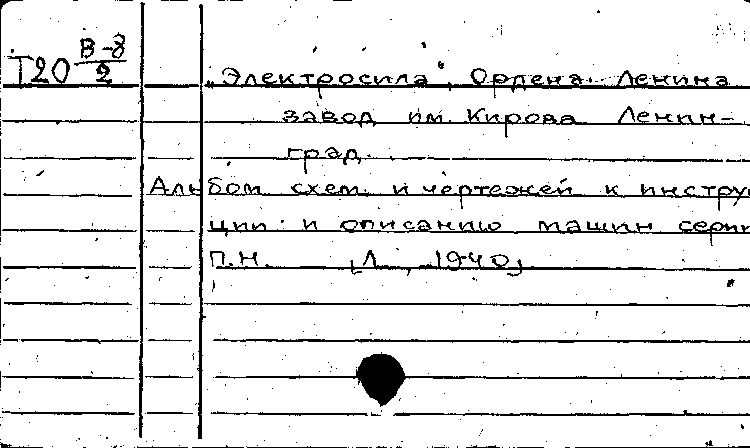 Т20 В-8/2
„Электросила", Ордена Ленина
завод им. Кирова Ленин-
град.
Альбом схем и чертежей к инстру
ции и описанию машин серии
П.Н. [Л, 1940]